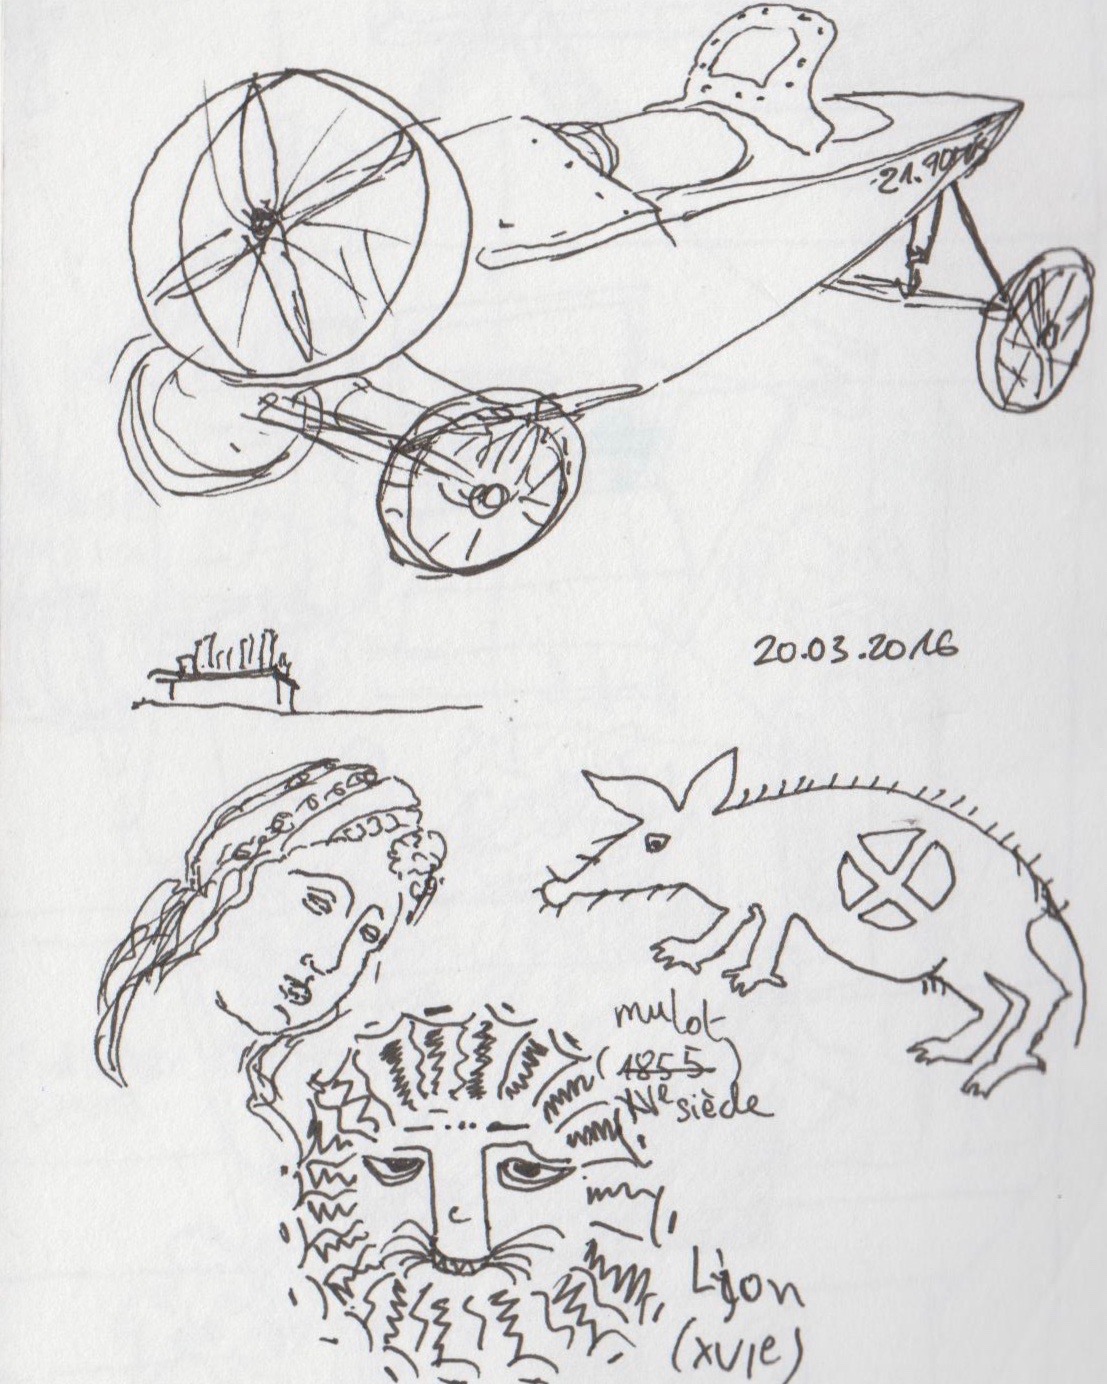 20.03.2016
mulot
(1855)
XVe siècle
Lion
(XVIe)